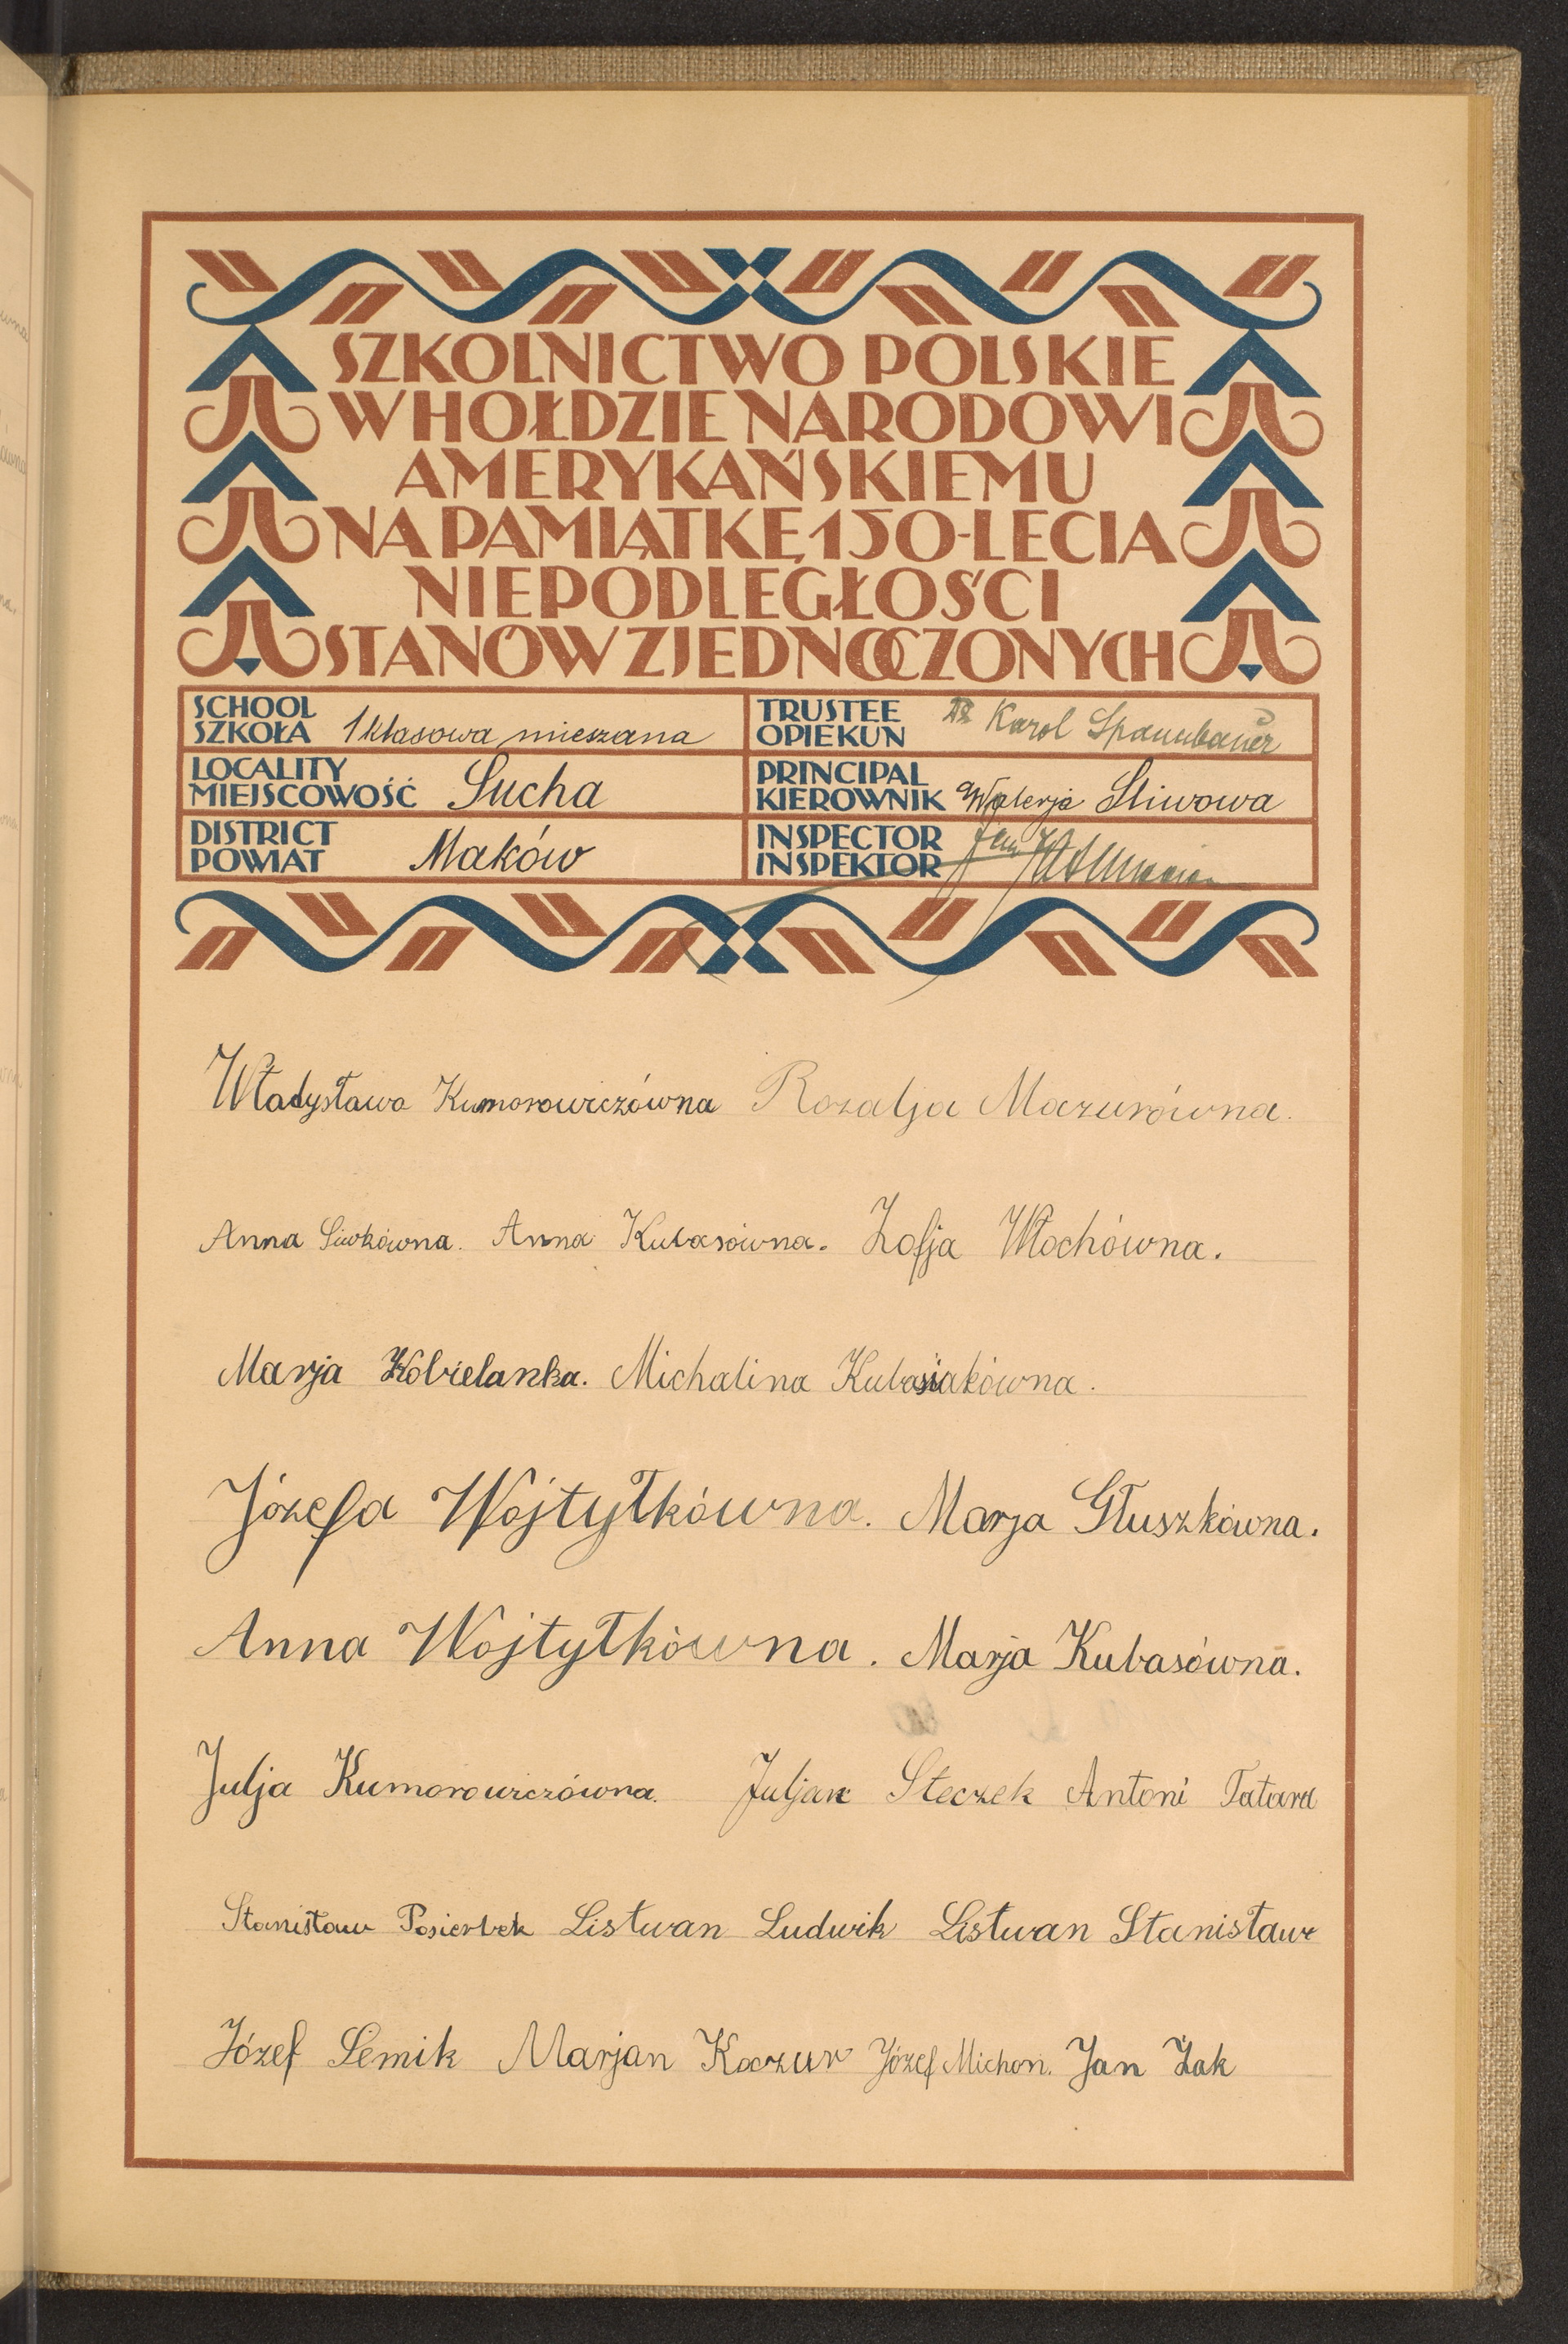 SZKOLNICTWO POLSKIE
W HOŁDZIE NARODOWI
AMERYKAŃSKIEMU
NA PAMIĄTKĘ 150-LECIA
NIEPODLEGŁOŚCI
STANÓW ZJEDNOCZONYCH
SCHOOL
SZKOŁA 1 klasowa mieszana
TRUSTEE
OPIEKUN Dr Karol Spannbauer
LOCALITY
MIEJSCOWOŚĆ Sucha
PRINCIPAL
KIEROWNIK Walerja Śliwowa
DISTRICT
POWIAT Maków
INSPECTOR
INSPEKTOR Jan
Władysława Kumorowiczówna Rozalja Mazurówna.
Anna Siwkówna. Anna Kubasówna. Zofja Włochówna.
Marja Kobielanka. Michalina Kubasiakówna.
Józefa Wojtyłkówna. Marja Głuszkówna.
Anna Wojtyłkówna. Marja Kubasówna.
Julja Kumorowiczówna. Juljan Steczek Antoni Tatara
Stanisław Posierbek Listwan Ludwik Listwan Stanisław
Józef Semik Marjan Koczur Józef Michon. Jan Żak